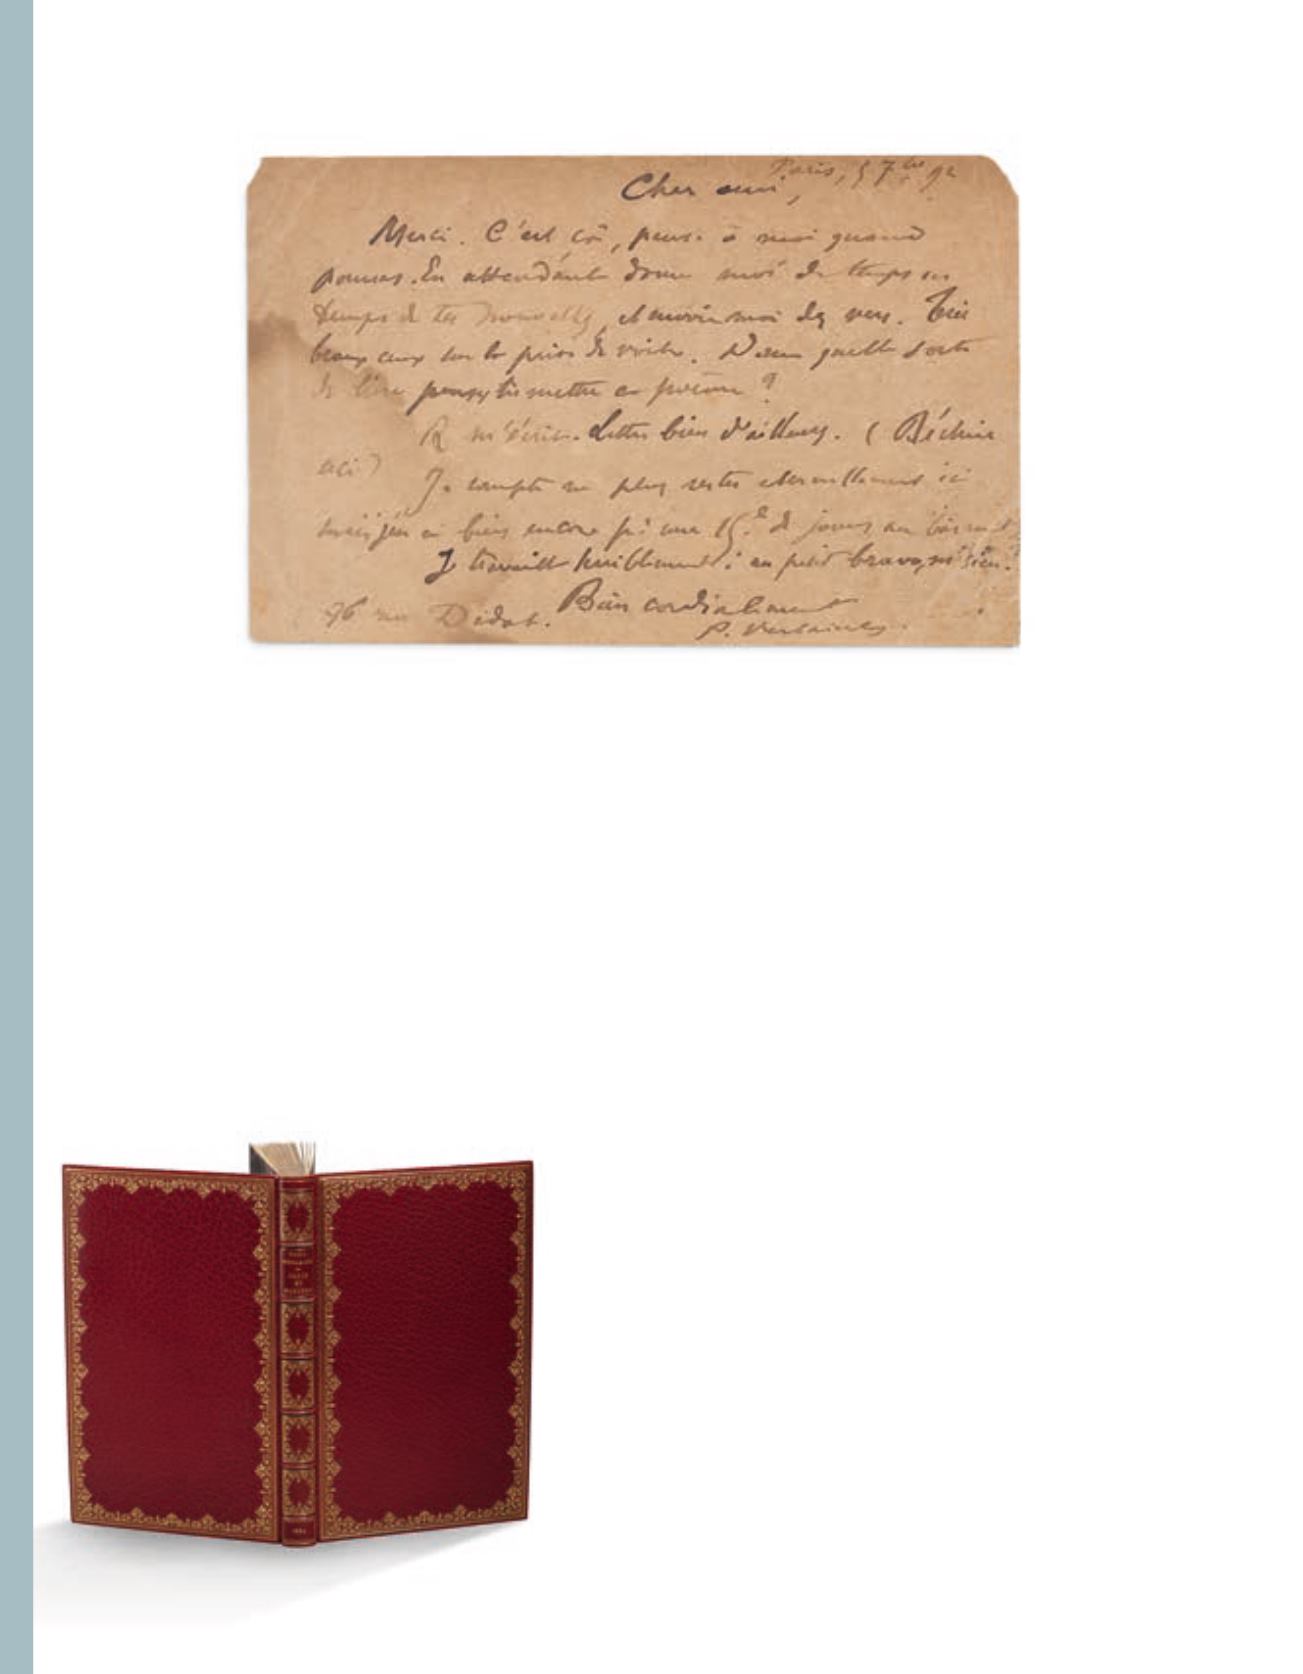 Paris, 5 7bre 92
Cher ami,
Merci. C'est çà, pense à moi quand
pourras. En attendant donne moi de temps en
temps de tes nouvelles, et envoie moi des vers. Très
beaux ceux sur la prise de voile. Dans quelle sorte
de livre penses tu mettre ce poème ?
R m'écrit. Lettre bien d'ailleurs. (
Je compte ne plus rester éternellement ici
mais j'en ai bien encore pr une 15e de jours au
Je travaille : un petit bravo,
96 rue Didot. Bien cordialement
P. Verlaine
PAUL
VERLAINE